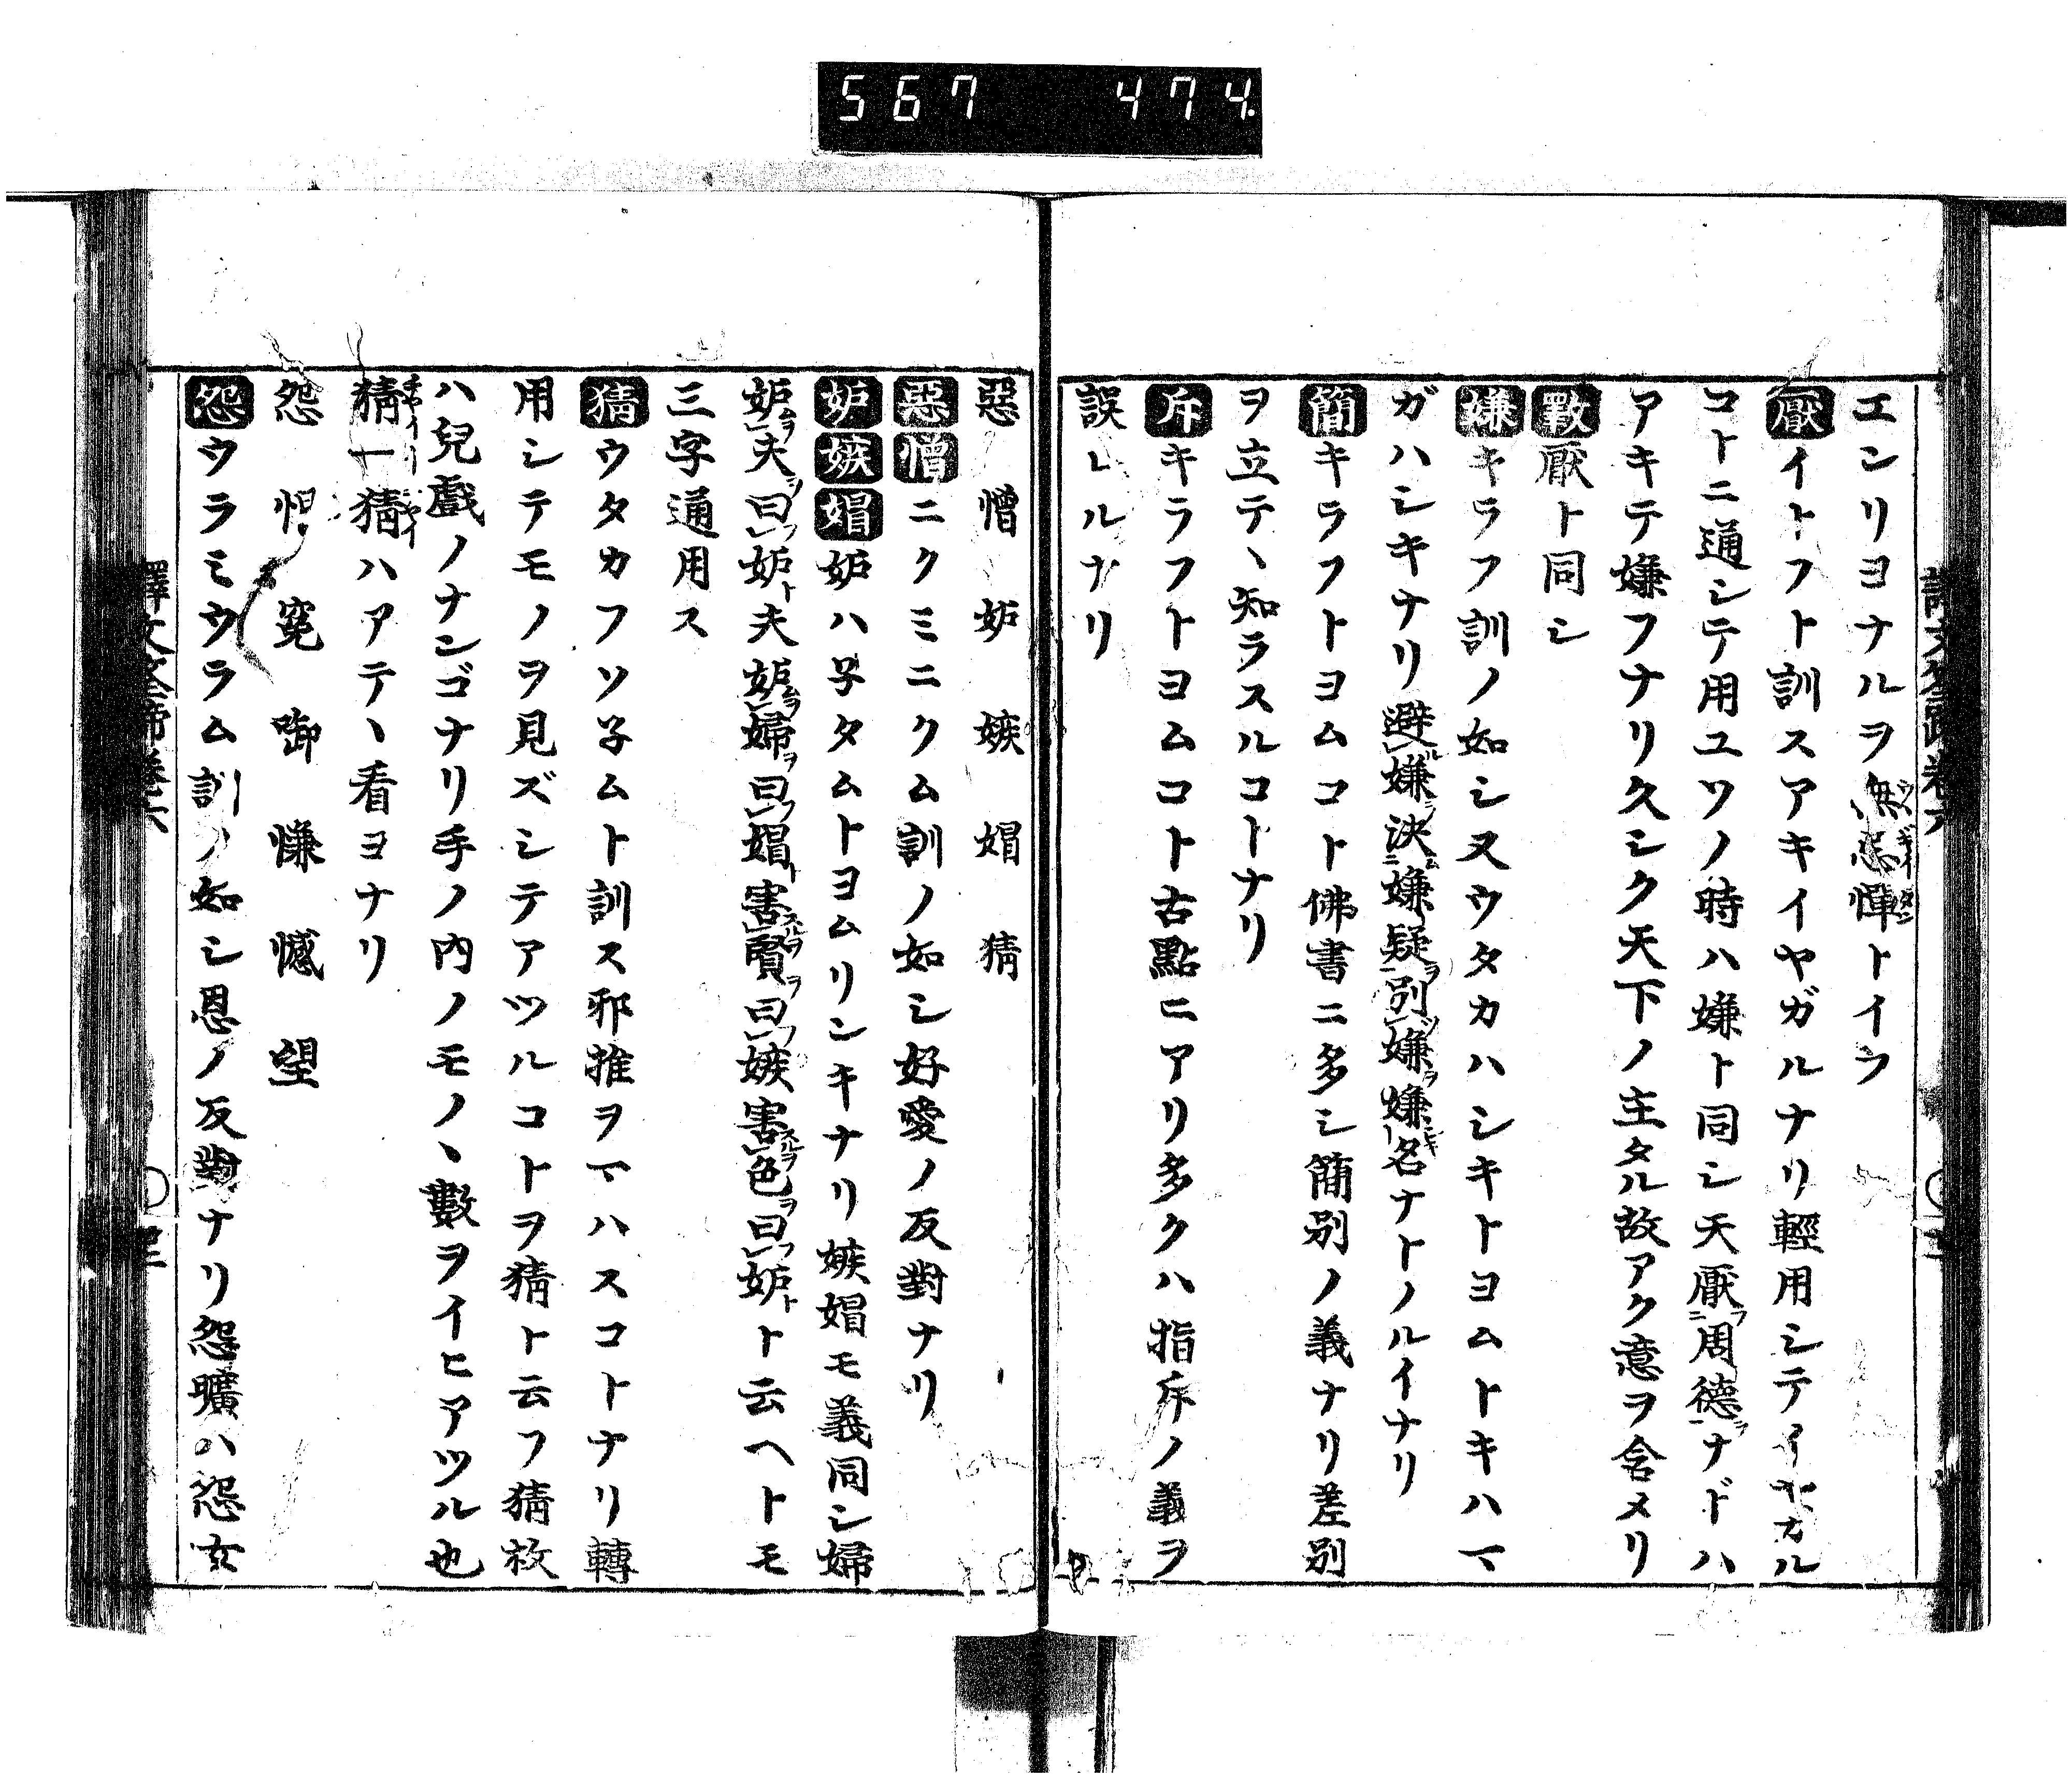 567 474
エンリヨナルヲ無忌憚トイウ
厭イトフト訓スアキイヤガルナリ輕用シテイヤガル
コトニ通シテ用ユソノ時ハ嫌ト同シ天厭周德ナドハ
アキテ嫌フナリ久シク天下ノ主タル故アク意ヲ含メリ
斁厭ト同シ
嫌キラフ訓ノ如シ又ウタカハシキトヨムトキハマ
ガハシキナリ避嫌決嫌疑別嫌嫌名ナトノルイナリ
簡キラフトヨムコト佛書ニ多シ簡別ノ義ナリ差別
ヲ立テヽ知ラスルコトナリ
斥キラフトヨムコト古點ニアリ多クハ指斥ノ義ヲ
誤レルナリ
惡 憎 妬 嫉 媢 猜
惡憎ニクミニクム訓ノ如シ好愛ノ反對ナリ
妒嫉媢妒ハ子タムトヨムリンキナリ嫉媢モ義同シ婦
妬夫曰妬夫妬婦曰媢害賢曰嫉害色曰妬ト云ヘトモ
三字通用ス
猜ウタカフソ子ムト訓ス邪推ヲマハスコトナリ轉
用シテモノヲ見ズシテアツルコトヲ猜ト云フ猜枚
ハ兒戲ノナンゴナリ手ノ内ノモノヽ數ヲイヒアツル也
猜一猜ハアテヽ看ヨナリ
怨 悒 冤 啣 慊 憾 望
怨ウラミウラム訓ノ如シ恩ノ反對ナリ怨曠ハ怨女